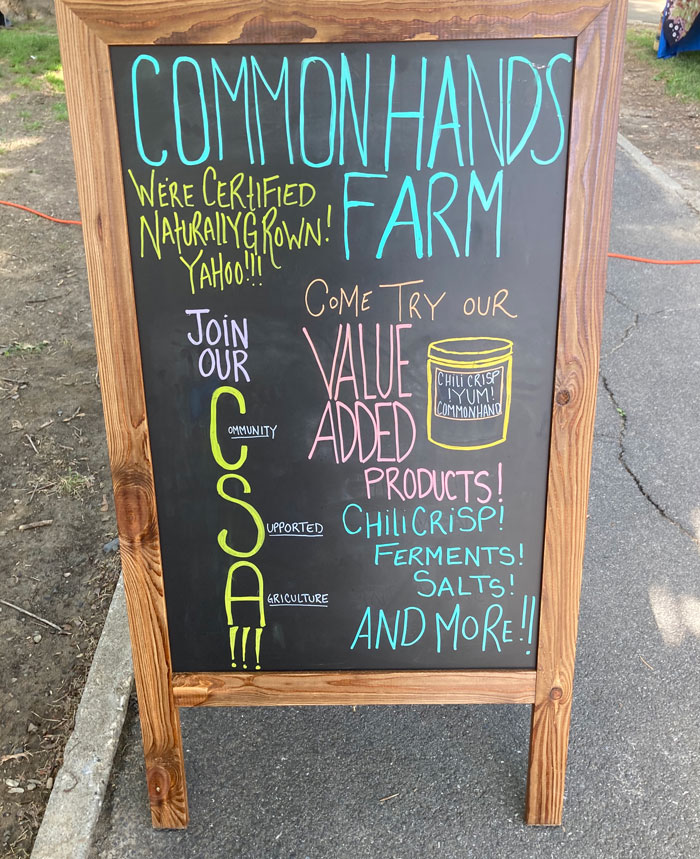 COMMON HANDS
FARM
WE'RE CERTIFIED
NATURALLY GROWN!
YAHOO!!!
JOIN
OUR
COMMUNITY
SUPPORTED
AGRICULTURE
!!!
COME TRY OUR
VALUE
ADDED
PRODUCTS!
CHILI CRISP
!YUM!
COMMONHAND
CHILI CRISP!
FERMENTS!
SALTS!
AND MORE!!